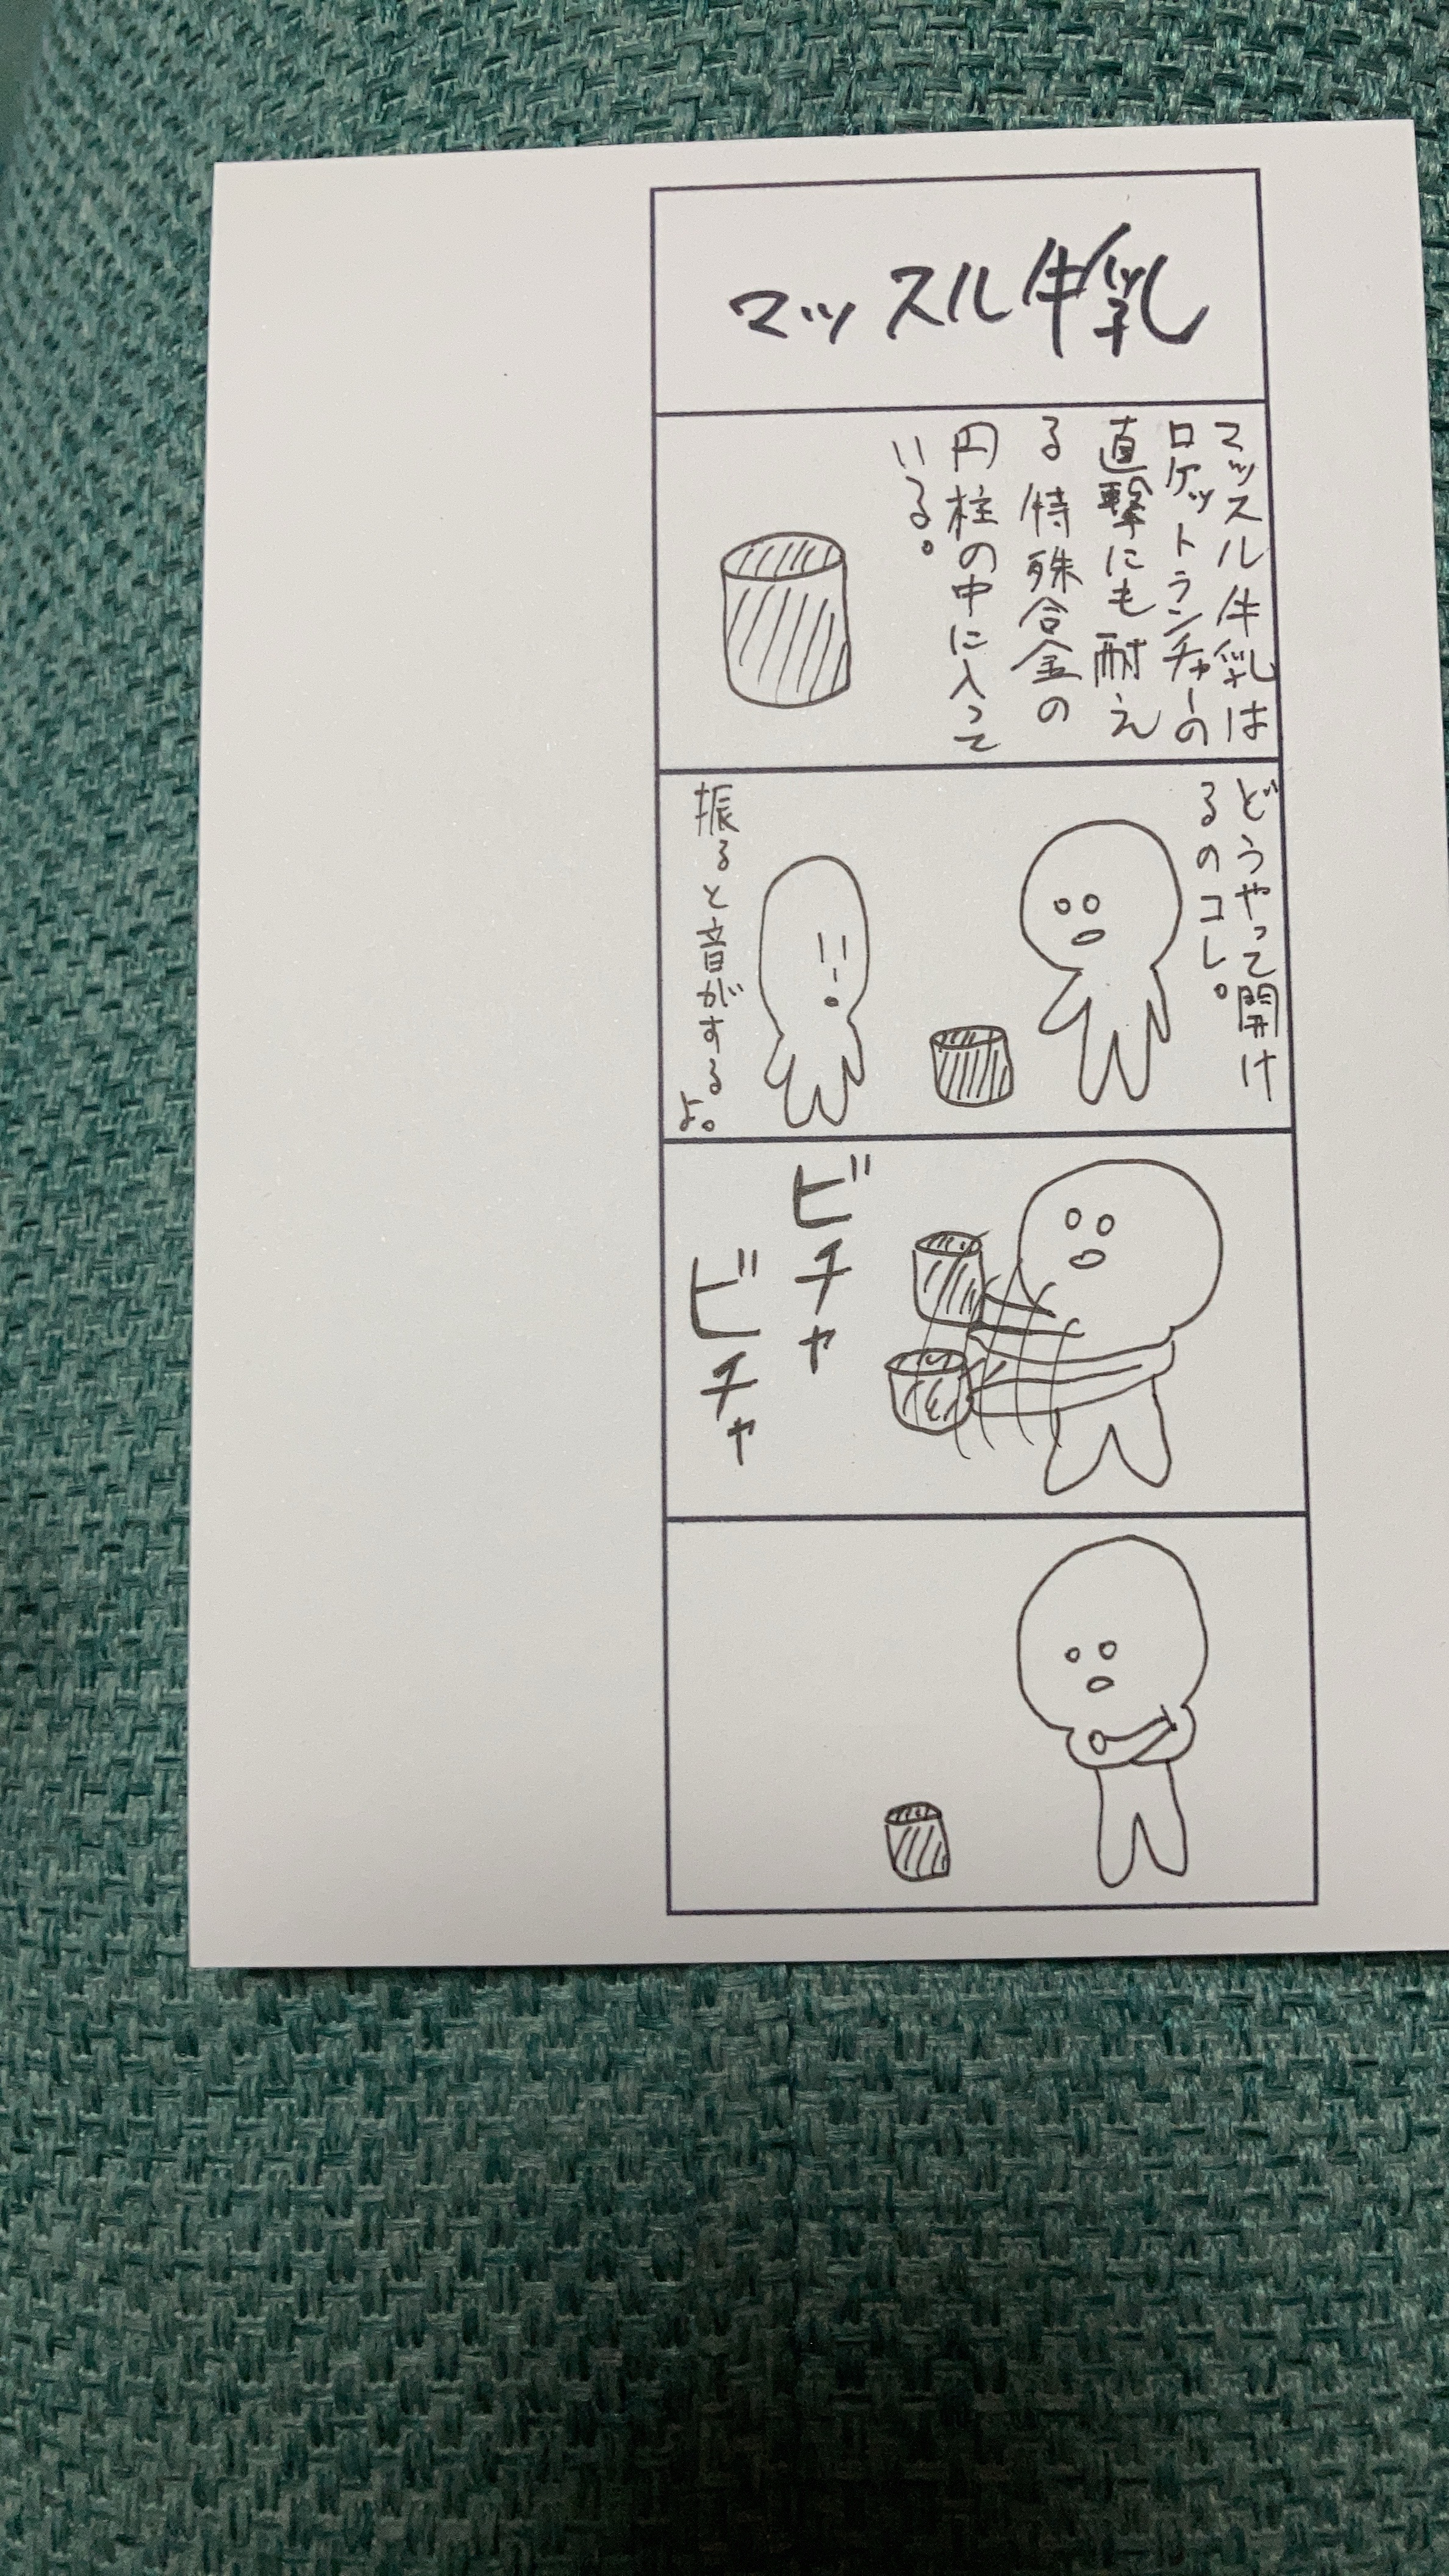 マッスル牛乳
マッスル牛乳は
ロケットランチャーの
直撃にも耐え
る特殊合金の
円柱の中に入って
いる。
どうやって開け
るのコレ。
振ると音がする
よ。
ビチャ
ビチャ